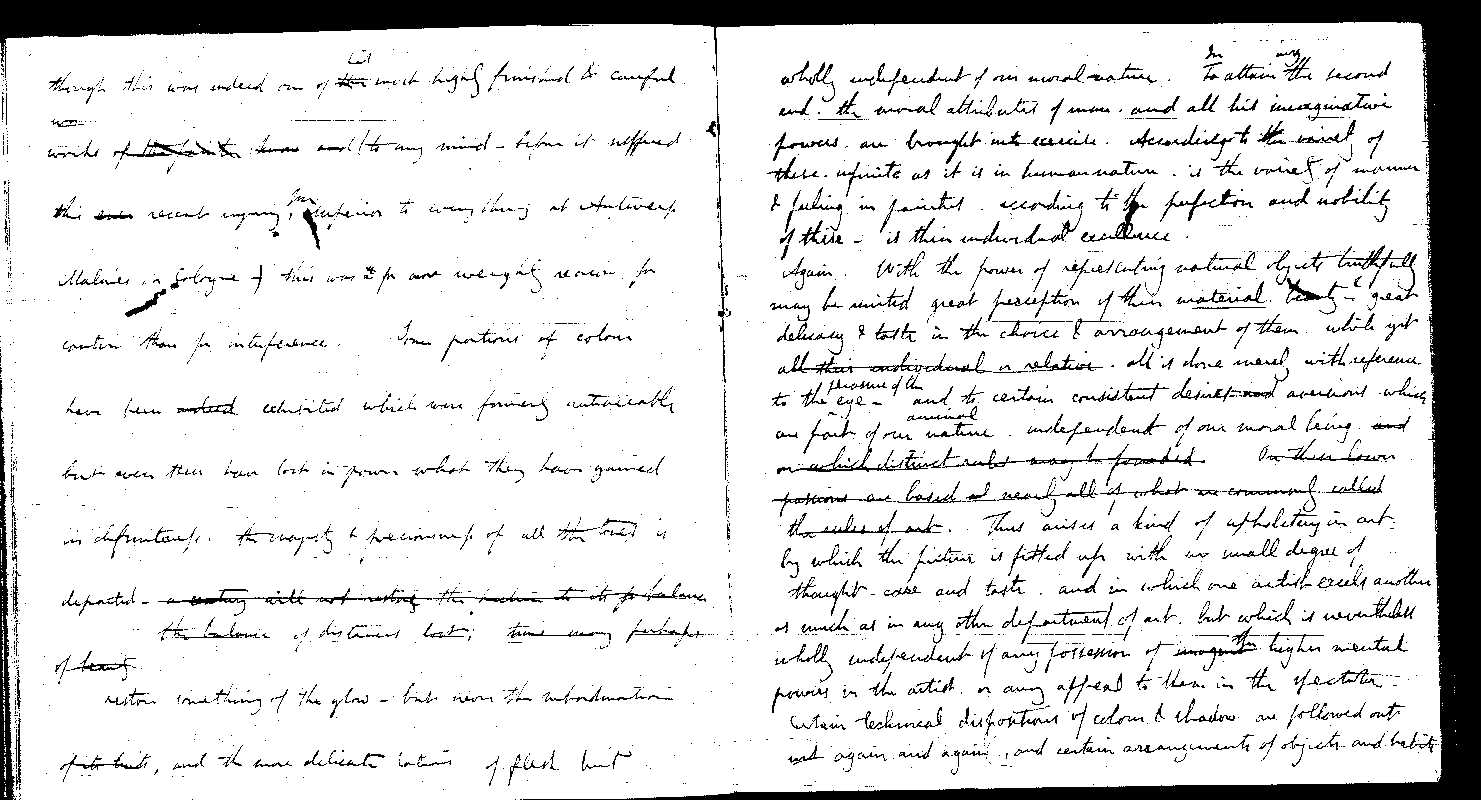 his
though this was indeed one of the most highly finished & careful
works of the painter known and (to my mind - before it suffered
this even recent injury, far superior to everything at Antwerp
Malines, or Cologne) this was no more weighty reason for
caution than for interference. Some portions of colour
have been indeed exhibited which were formerly untraceable
but even these have lost in power what they have gained
in definiteness. the majesty & preciousness of all the tones is
departed - a century will not restore the to its balance
the balance of distances lost; time may perhaps
of beauty
restore something of the glow - but never the subordination
of its tints, and the more delicate portions of flesh tint
In any
wholly independent of our moral nature. To attain the second
end. the moral attributes of man. and all his imaginative
powers are brought into exercise. According to the variety of
these. infinite as it is in human nature. is the variety of manner
& feeling in painters. according to the perfection and nobility
of these - is their individual excellence.
Again. With the power of representing natural objects truthfully
may be united great perception of their material beauty - & great
delicacy & taste in the choice & arrangement of them. while yet
all their individual or relative. all is done merely with reference
pleasure of the
to the eye - and to certain consistent desires and aversions which
animal
are part of our nature. independent of our moral being. and
on which distinct rules may be founded. On these lower
passions are based nearly all of what are commonly called
the rules of art. Thus arises a kind of upholstery in art.
by which the picture is fitted up with no small degree of
thought - care and taste. and in which one artist excels another
as much as in any other department of art. but which is nevertheless
the
wholly independent of any possession of higher mental
powers in the artist. or any appeal to them in the spectator -
Certain technical dispositions of colour & shadow are followed out
again and again, and certain arrangements of objects and habits